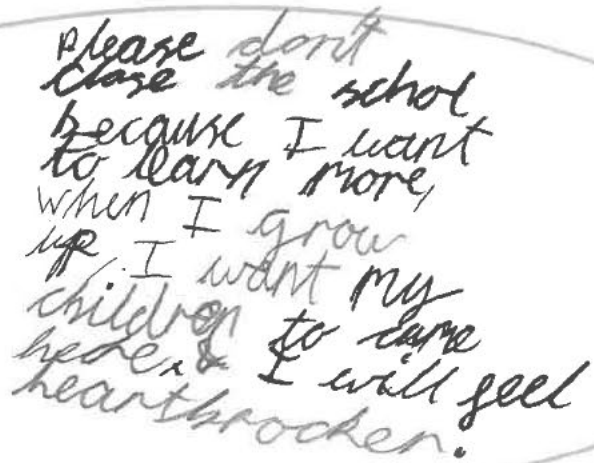 please don't
close the schol
because I want
to learn more,
when I grow
up, I want my
children to came
here. & I will feel
heartbrocken.